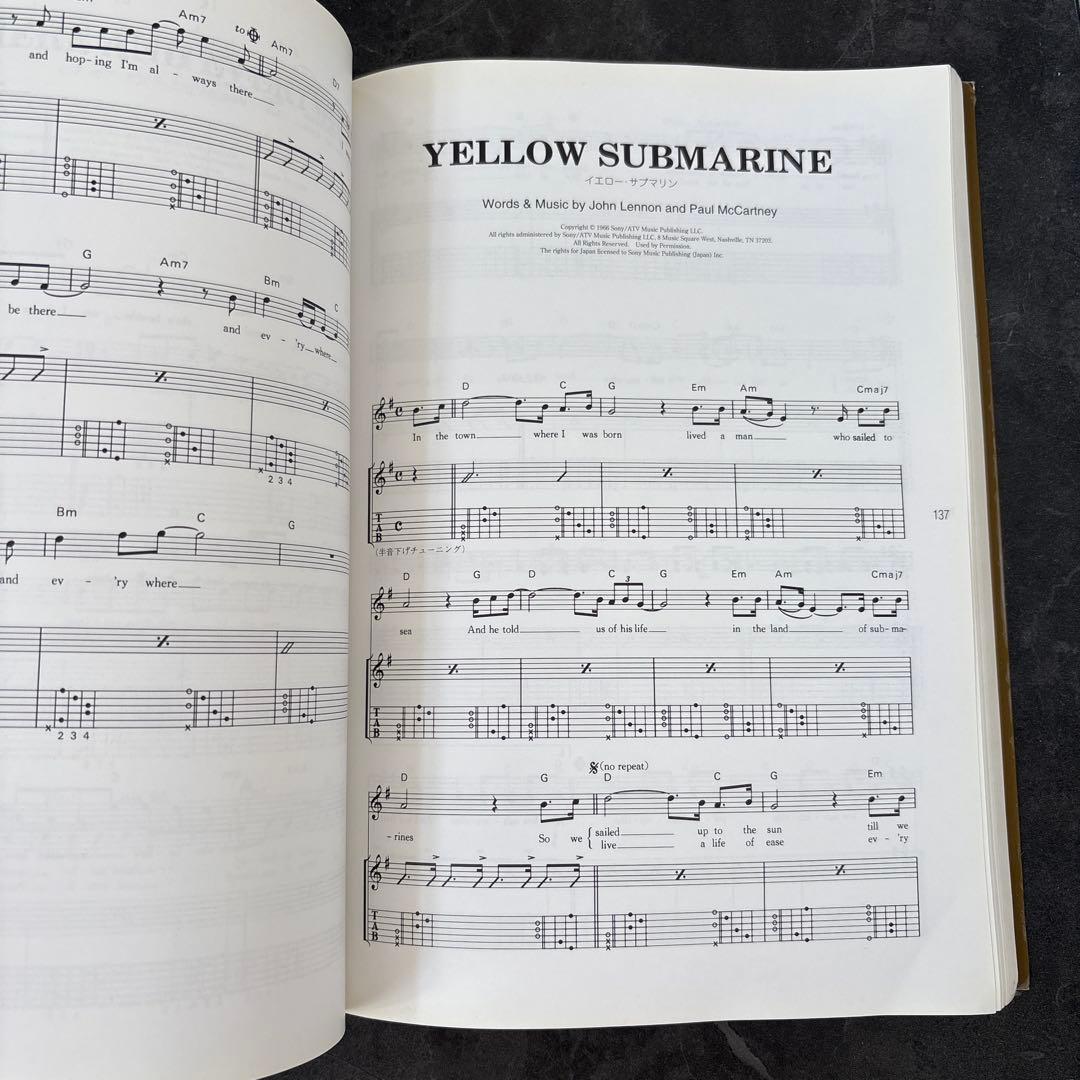 Am7 to Am7 D7
and hop-ing I'm al - ways there
G Am7 Bm C
be there and ev - 'ry where
2 3 4
Bm C G
and ev - 'ry where
2 3 4
YELLOW SUBMARINE
イエロー・サブマリン
Words & Music by John Lennon and Paul McCartney
Copyright © 1966 Sony/ATV Music Publishing LLC.
All rights administered by Sony/ATV Music Publishing LLC, 8 Music Square West, Nashville, TN 37203.
All Rights Reserved. Used by Permission.
The rights for Japan licensed to Sony Music Publishing (Japan) Inc.
D C G Em Am Cmaj7
In the town where I was born lived a man who sailed to
TAB
137
(半音下げチューニング)
D G D C G Em Am Cmaj7
3
sea And he told us of his life in the land of sub-ma-
TAB
(no repeat)
D G D C G Em
- rines So we { sailed up to the sun till we
live a life of ease ev - 'ry
TAB